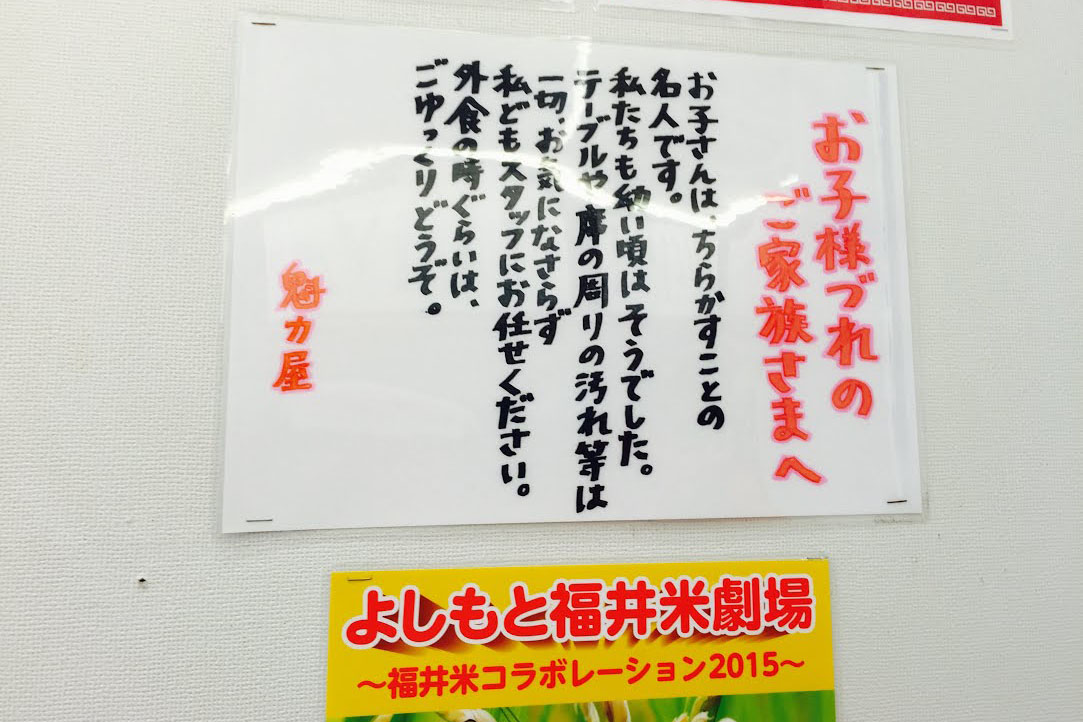 お子様づれの
ご家族さまへ
お子さんは、ちらかすことの
名人です。
私たちも幼い頃はそうでした。
テーブルや席の周りの汚れ等は
一切、お気になさらず
私どもスタッフにお任せください。
外食の時ぐらいは、
ごゆっくりどうぞ。
魁力屋
よしもと福井米劇場
〜福井米コラボレーション2015〜